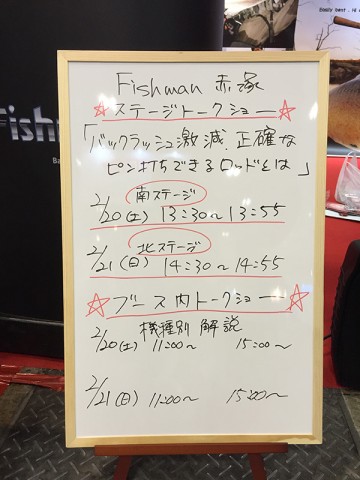 Fishman 赤塚
☆ステージトークショー☆
「バックラッシュ激減、正確な
ピン打ちできるロッドとは」
南ステージ
2/20(土) 13:30~13:55
北ステージ
2/21(日) 14:30~14:55
☆ブース内トークショー☆
機種別 解説
2/20(土) 11:00~ 15:00~
2/21(日) 11:00~ 15:00~